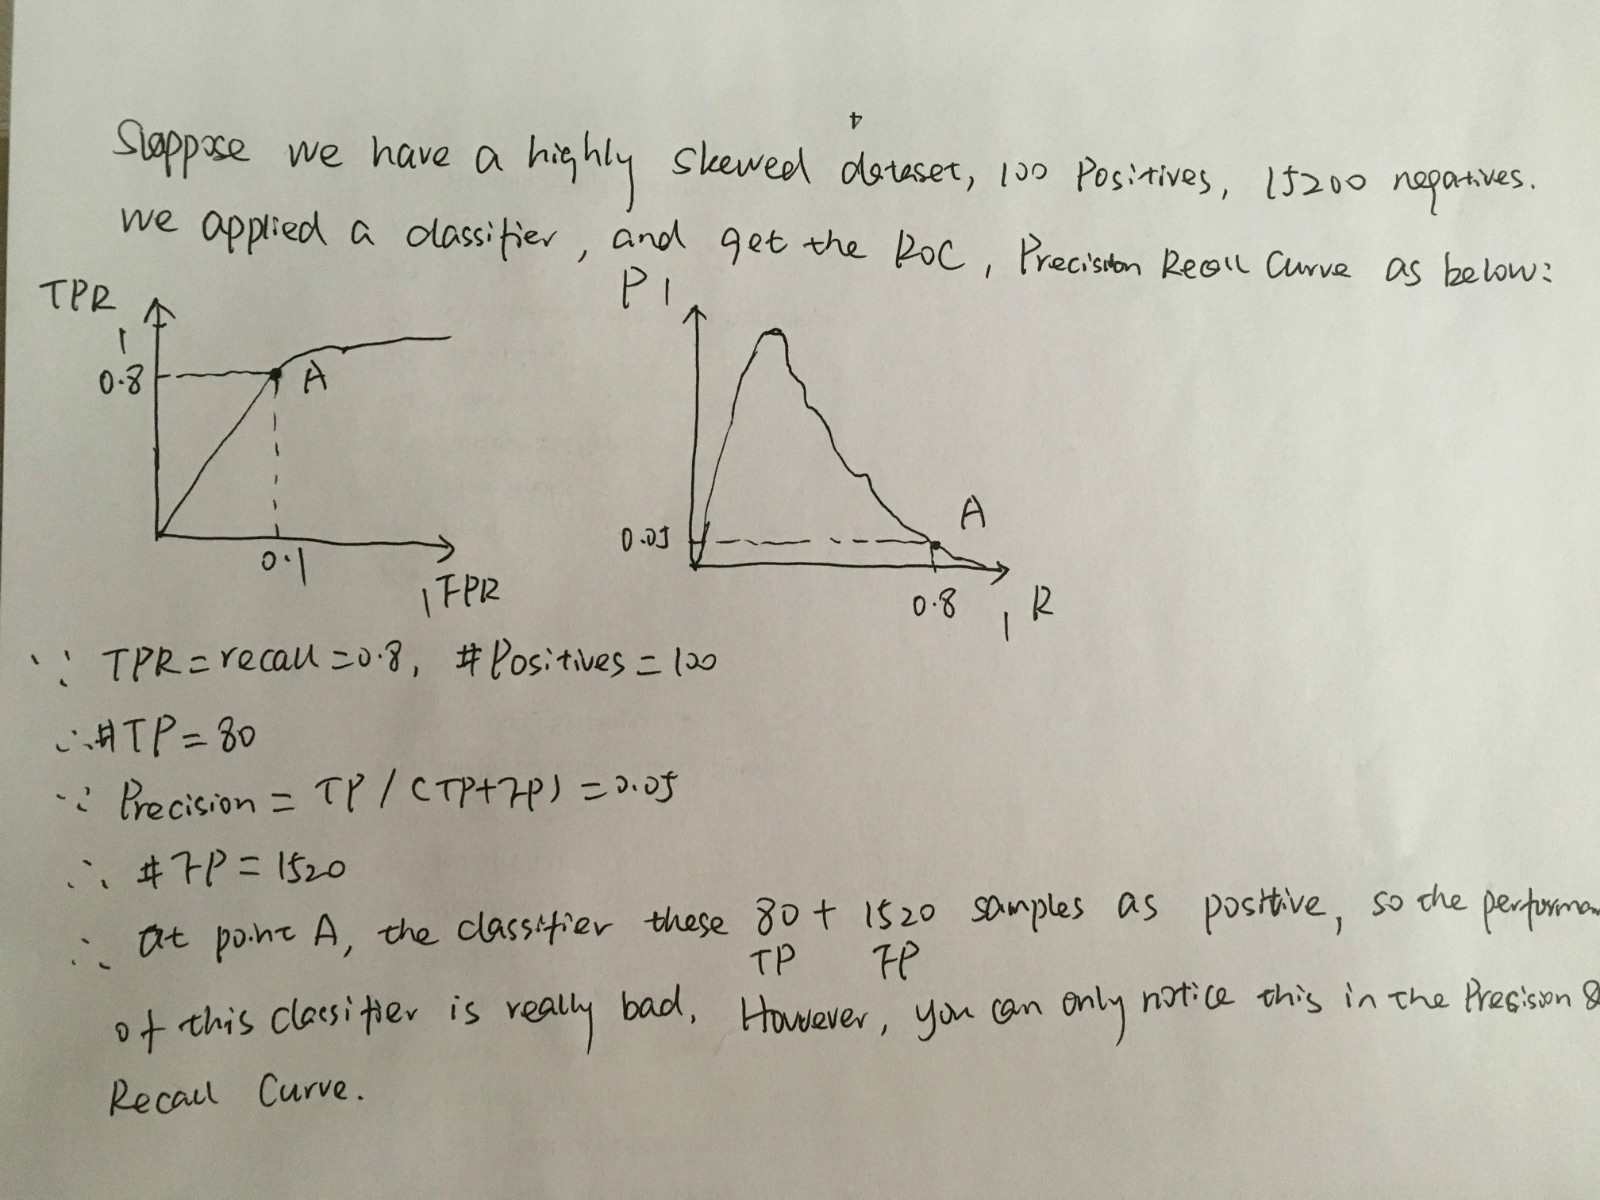 4
Suppose we have a highly skewed dataset, 100 Positives, 15200 negatives.
we applied a classifier, and get the ROC, Precision Recall Curve as below:
TPR
1
0.8
A
0.1
1 FPR
P 1
A
0.05
0.8
1 R
∵ TPR = recall = 0.8, # Positives = 100
∴ # TP = 80
∵ Precision = TP / (TP+FP) = 0.05
∴ # FP = 1520
∴ at point A, the classifier these 80 + 1520 samples as positive, so the performan
TP FP
of this classifier is really bad. However, you can only notice this in the Precision &
Recall Curve.